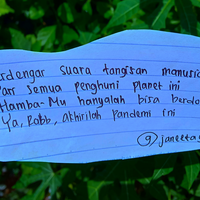 erdengar suara tangisan manusia
ari semua penghuni planet ini
Hamba-Mu hanyalah bisa berdo
Ya, Robb, akhirilah pandemi ini
@janeeta